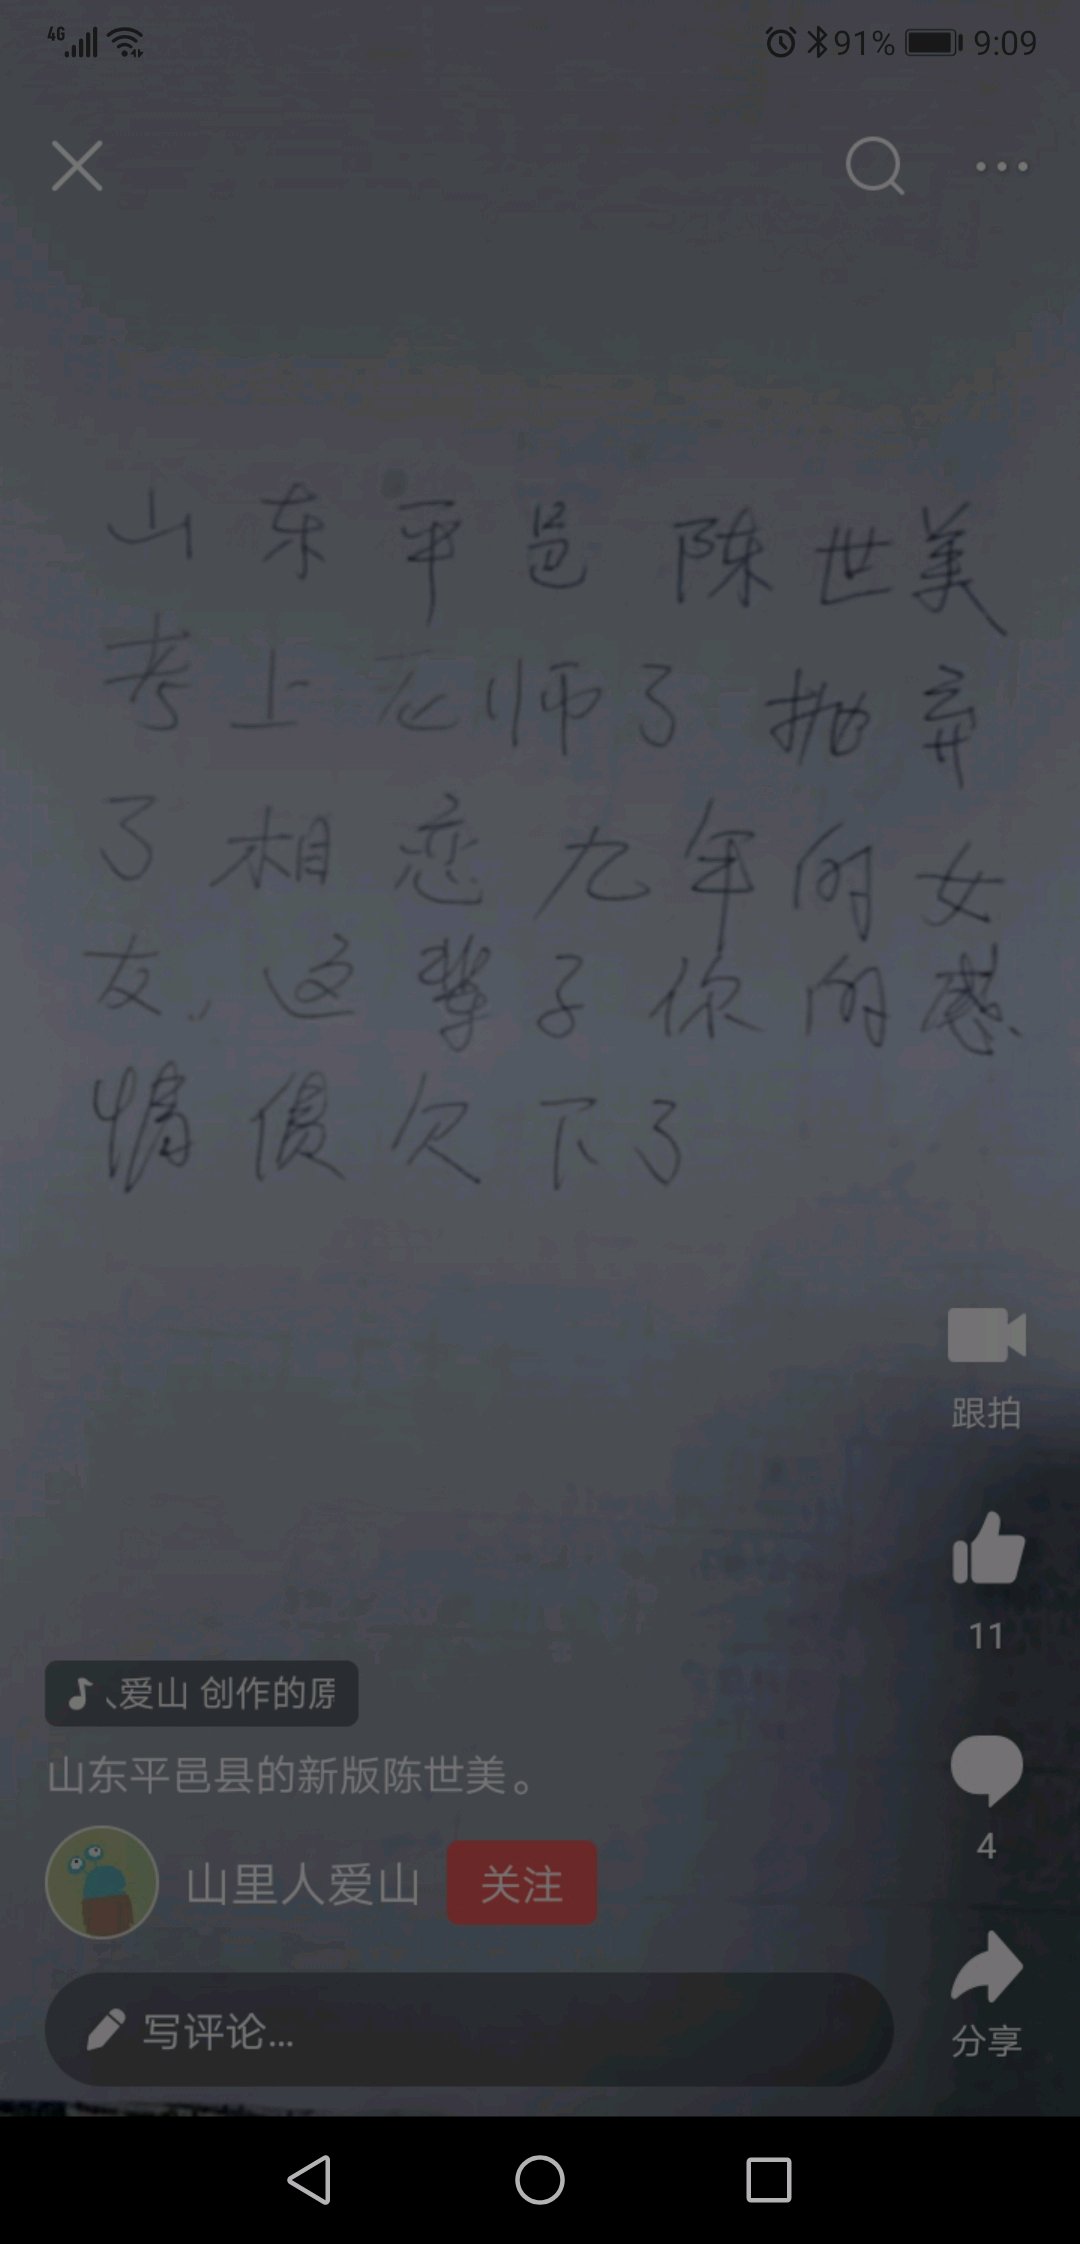 4G 91% 9:09
山东平邑陈世美
考上老师了抛弃
了相恋九年的女
友,这辈子你的感
情债欠下了
跟拍
11
爱山 创作的原
山东平邑县的新版陈世美。
4
山里人爱山 关注
写评论...
分享